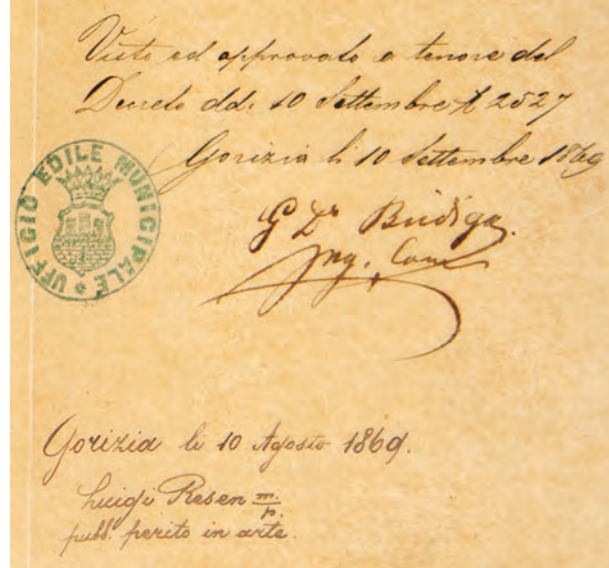 Visto ed approvato a tenore del
Decreto dd: 10 Settembre N 2527
Gorizia li 10 Settembre 1869
UFFICIO EDILE MUNICIPALE
G Dr Budiga.
Ing. Com
Gorizia li 10 Agosto 1869.
Luigi Resen m/p.
pubb. perito in arte.